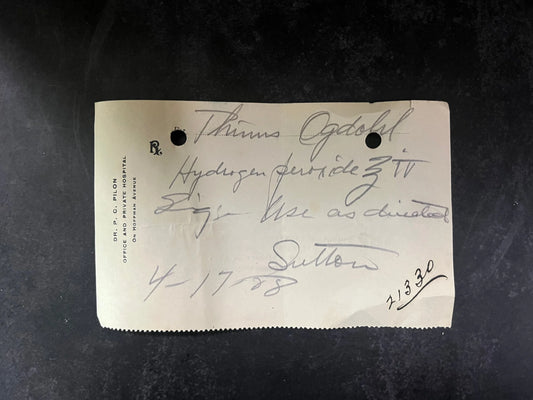 DR. P. C. PILON
OFFICE AND PRIVATE HOSPITAL
ON HOFFMAN AVENUE
℞
Ogdohl
Hydrogen peroxide ʒ ii
Sig. Use as directed
Sutton
4-17-28
21330